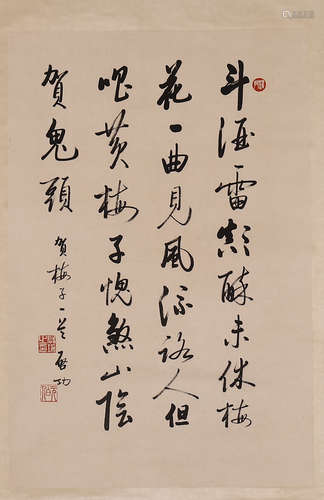 斗酒雷顛醉未休梅
花一曲見風流路人但
唱黄梅子愧煞山陰
賀鬼頭
賀梅子一首 啟功